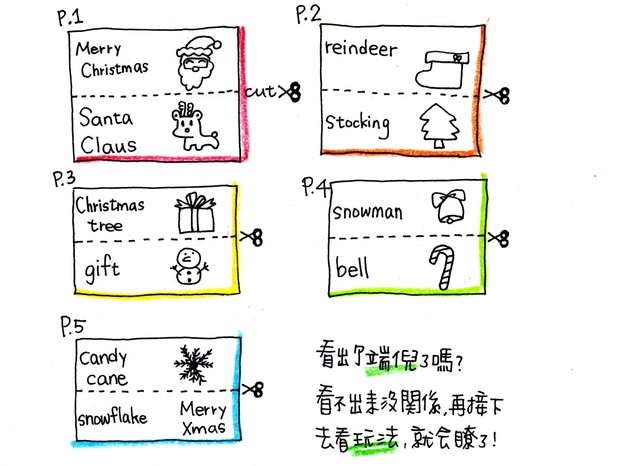 P.1
Merry
Christmas
cut
Santa
Claus
P.2
reindeer
Stocking
P.3
Christmas
tree
gift
P.4
snowman
bell
P.5
Candy
cane
snowflake
Merry
Xmas
看出了端倪了嗎?
看不出來沒關係,再接下
去看玩法,就会瞭了!